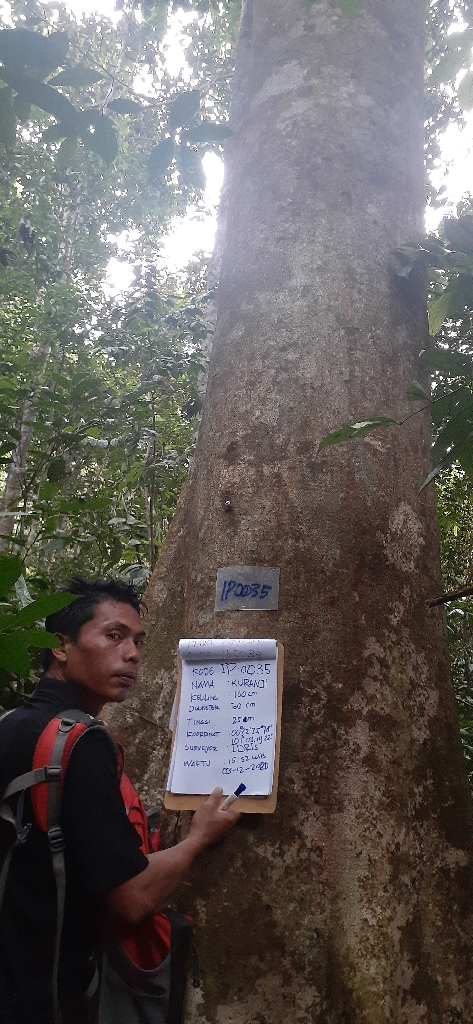 IP0035
KODE IP.0035
NAMA : KURANJI
KELILING : 160 cm
DIAMETER
TINGGI : 25 m
KOORDINAT
SURVEYOR : IDRIS
WAKTU : 15.52 WIB
03-12-2020